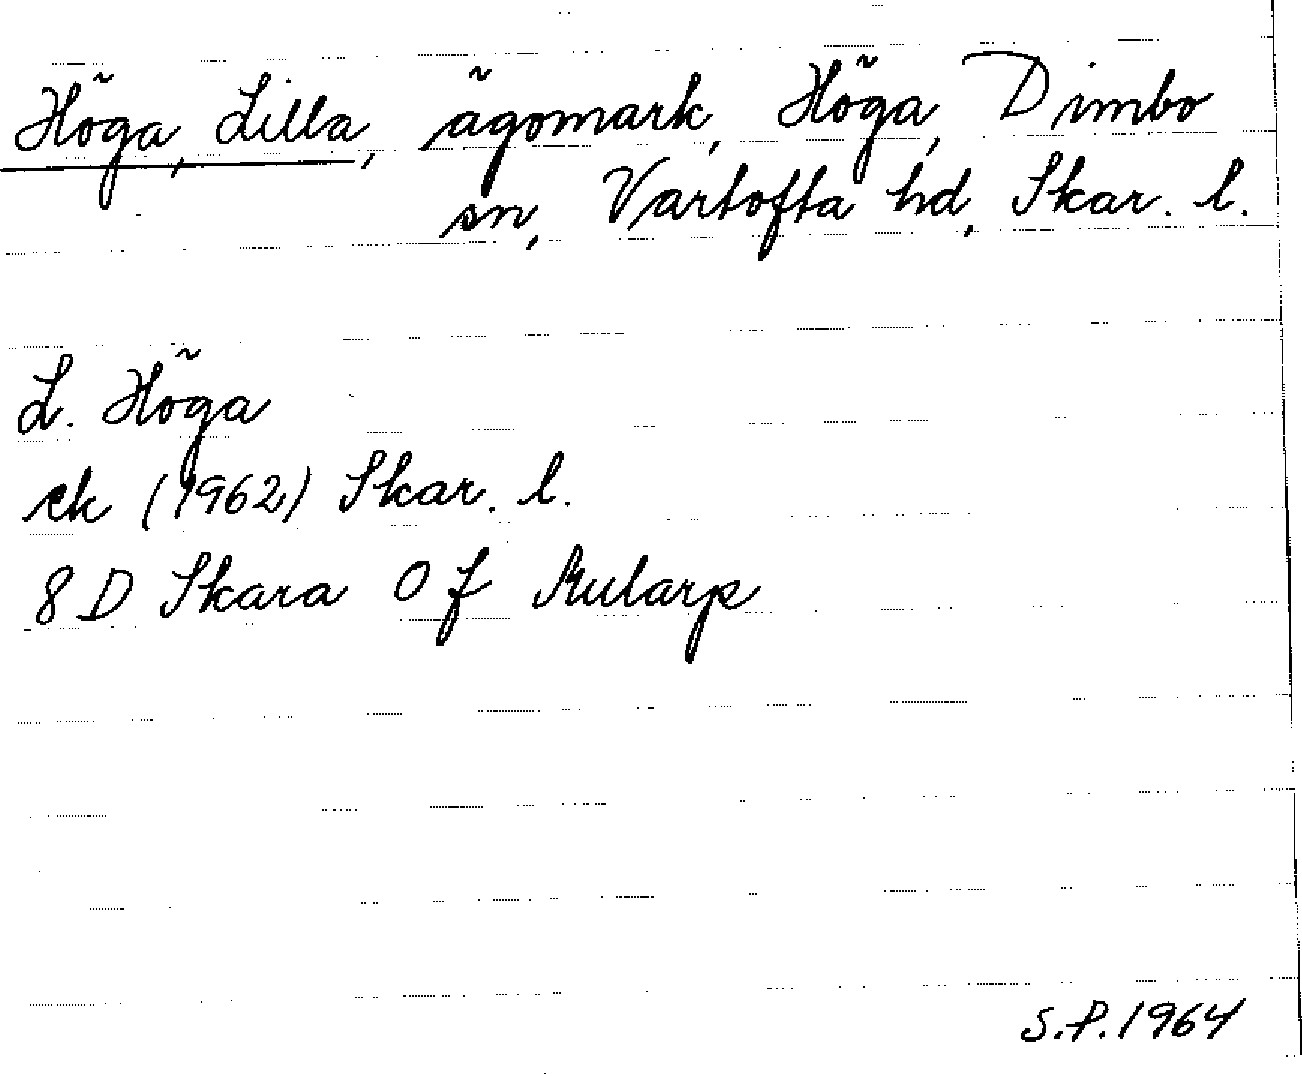 Höga, Lilla, ägomark, Höga, Dimbo
sn, Vartofta hd, Skar. l.
L. Höga
ek (1962) Skar. l.
8D Skara 0f Mularp
S.P. 1964